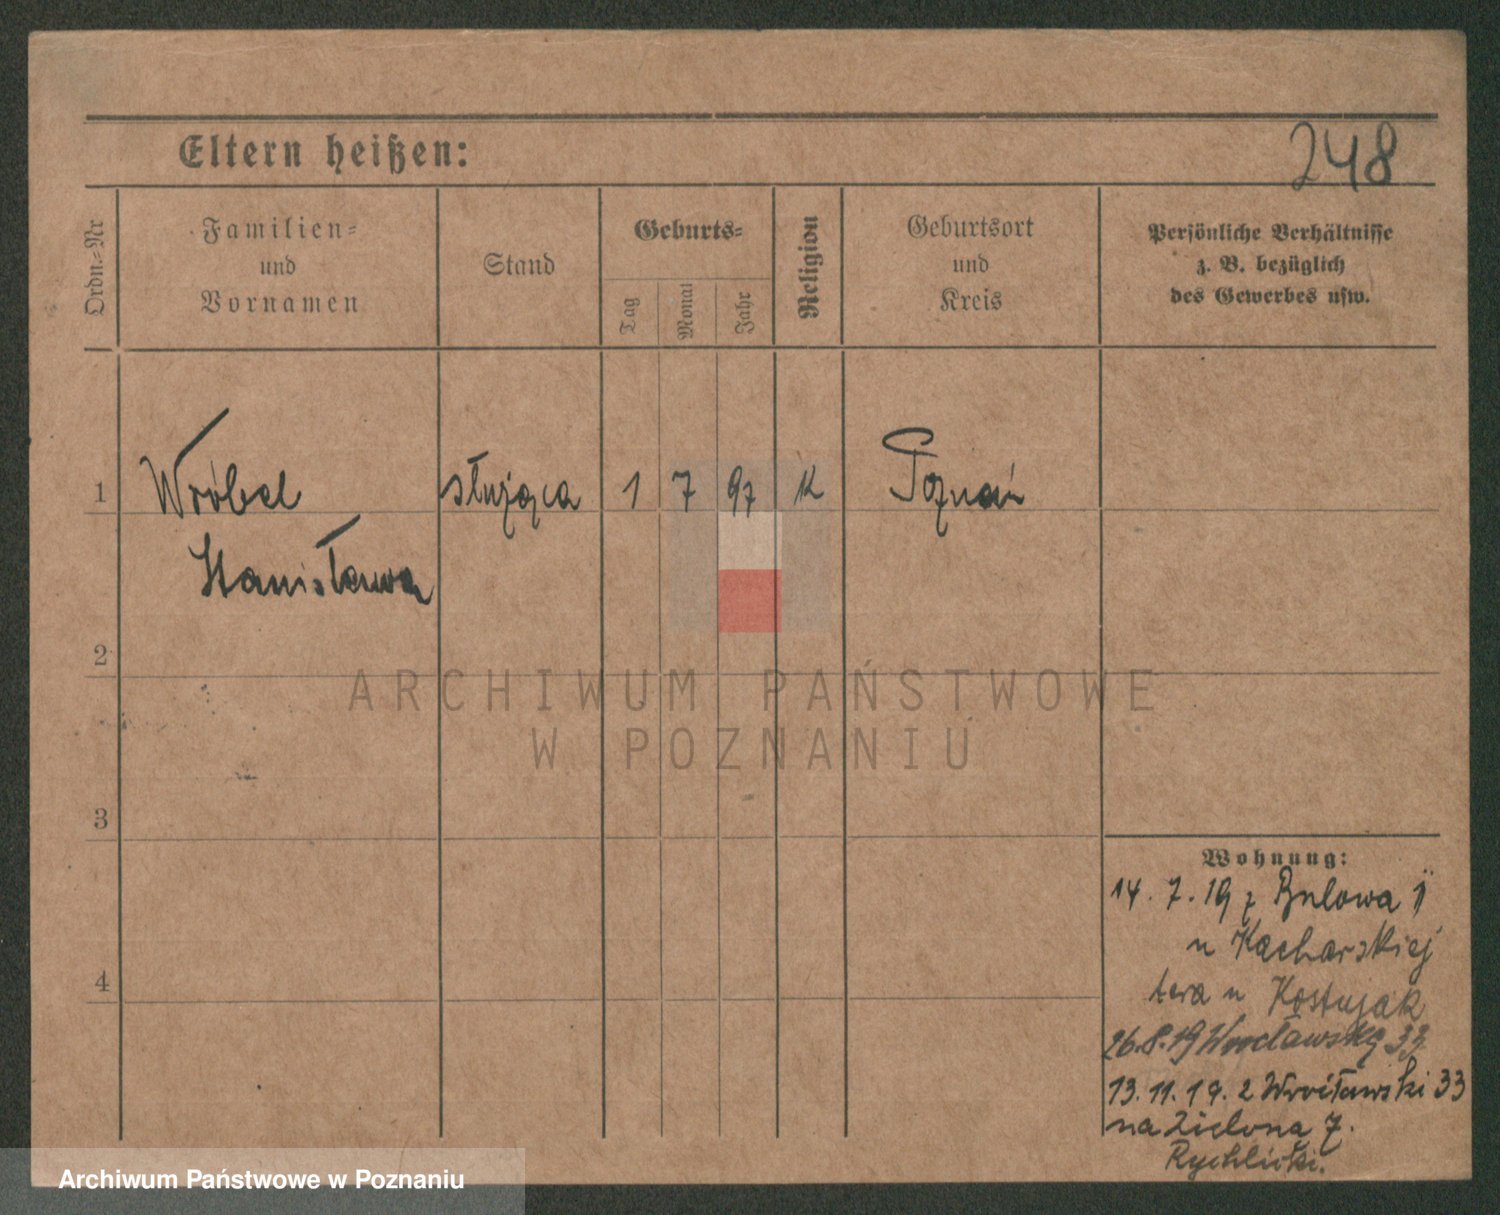 Eltern heißen:
248
Ordn.-Nr
Familien-
und
Vornamen
Stand
Geburts-
Tag
Monat
Jahr
Religion
Geburtsort
und
Kreis
Persönliche Verhältnisse
z. B. bezüglich
des Gewerbes usw.
1 Wróbel służąca 1 7 97 K Poznań
Stanisława
2
3
4
Wohnung:
14. 7. 19 z Bulowa
u Kacharskiej
u Kostujak
26.8.19 Wrocławską 33
13. 11. 19. z Wrocławski 33
na Zielona 7.
Rychlicki.
ARCHIWUM PAŃSTWOWE
W POZNANIU
Archiwum Państwowe w Poznaniu